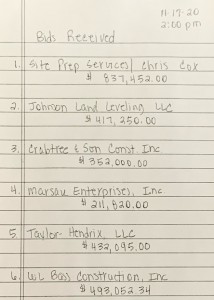 11-17-20
2:00 pm
Bids Received
1. Site Prep Services/ Chris Cox
$ 837,452.00
2. Johnson Land Leveling LLC
$ 417,250.00
3. Crabtree & Son Const. Inc
$ 352,000.00
4. Marsau Enterprises, Inc
$ 211,820.00
5 Taylor Hendrix LLC
$ 432,095.00
6. WL Bass Construction, Inc
$ 493,052.34